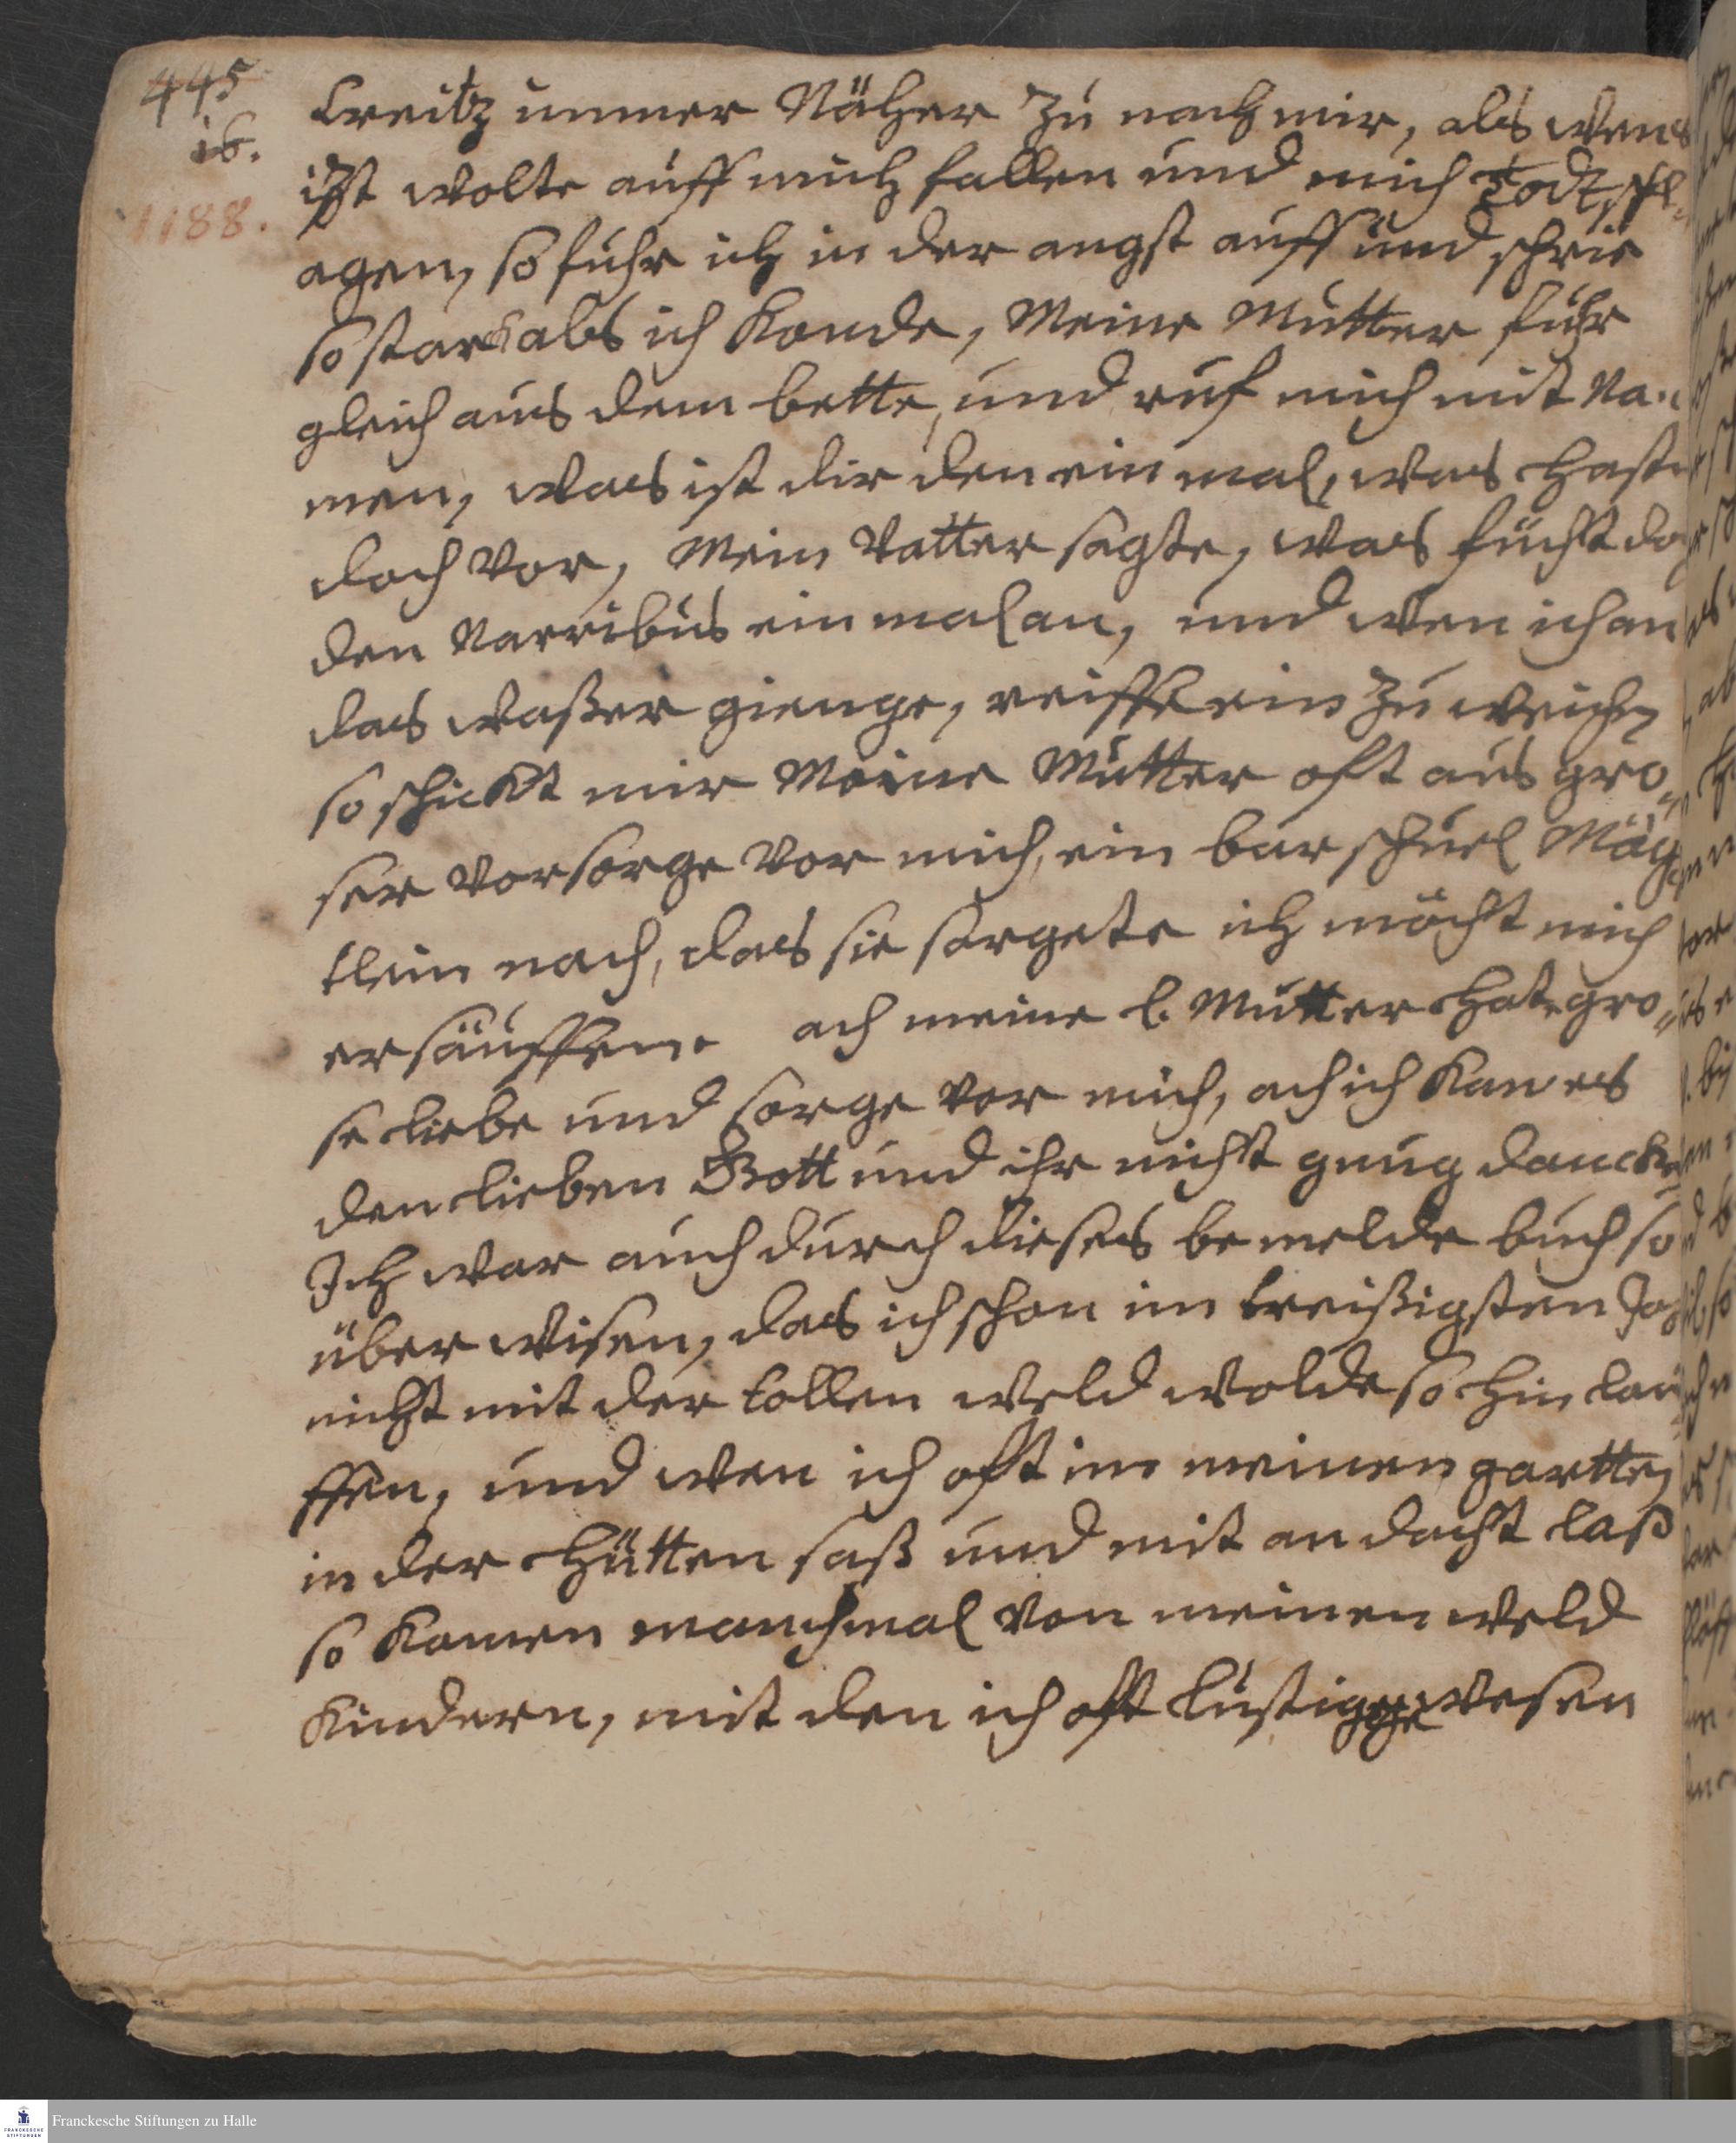 445
16.
1188.
Creitz immer Näher zu nach mir, als wens
itzt wolte auff mich fallen und mich Todt schl-
agen, so fuhr ich in der angst auff und schrie
so starck als ich konde, Meine Mutter fuhr
gleich aus dem bette, und ruf mich mit Na-
men, was ist dir den ein mal, was haste
doch vor, Mein Vatter sagte, was fücht do
den Narribus ein mal an, und wen ich an
das waßer gienge, reiffe ein zu weichen
so schickt mir Meine Mutter oft aus gro-
ser vorsorge vor mich, ein bar schuel Mäg
tlein nach, das sie sorgete ich möcht mich
ersäuffen. ach meine l. Mutter hat gro-
se liebe und sorge vor mich, ach ich kan es
den lieben Gott und ihr nicht gnug dancken
Ich war auch durch dieses bemelde buch so
über wisen, das ich schon im treißigsten Jah
nicht mit der tollen weld wolde so hin lau
ffen, und wen ich oft in meinen gartten
in der Hütten saß und mit an dacht laß
so kamen manchmal von meinen weld
Kindern, mit den ich oft lustig gewesen
Franckesche Stiftungen zu Halle